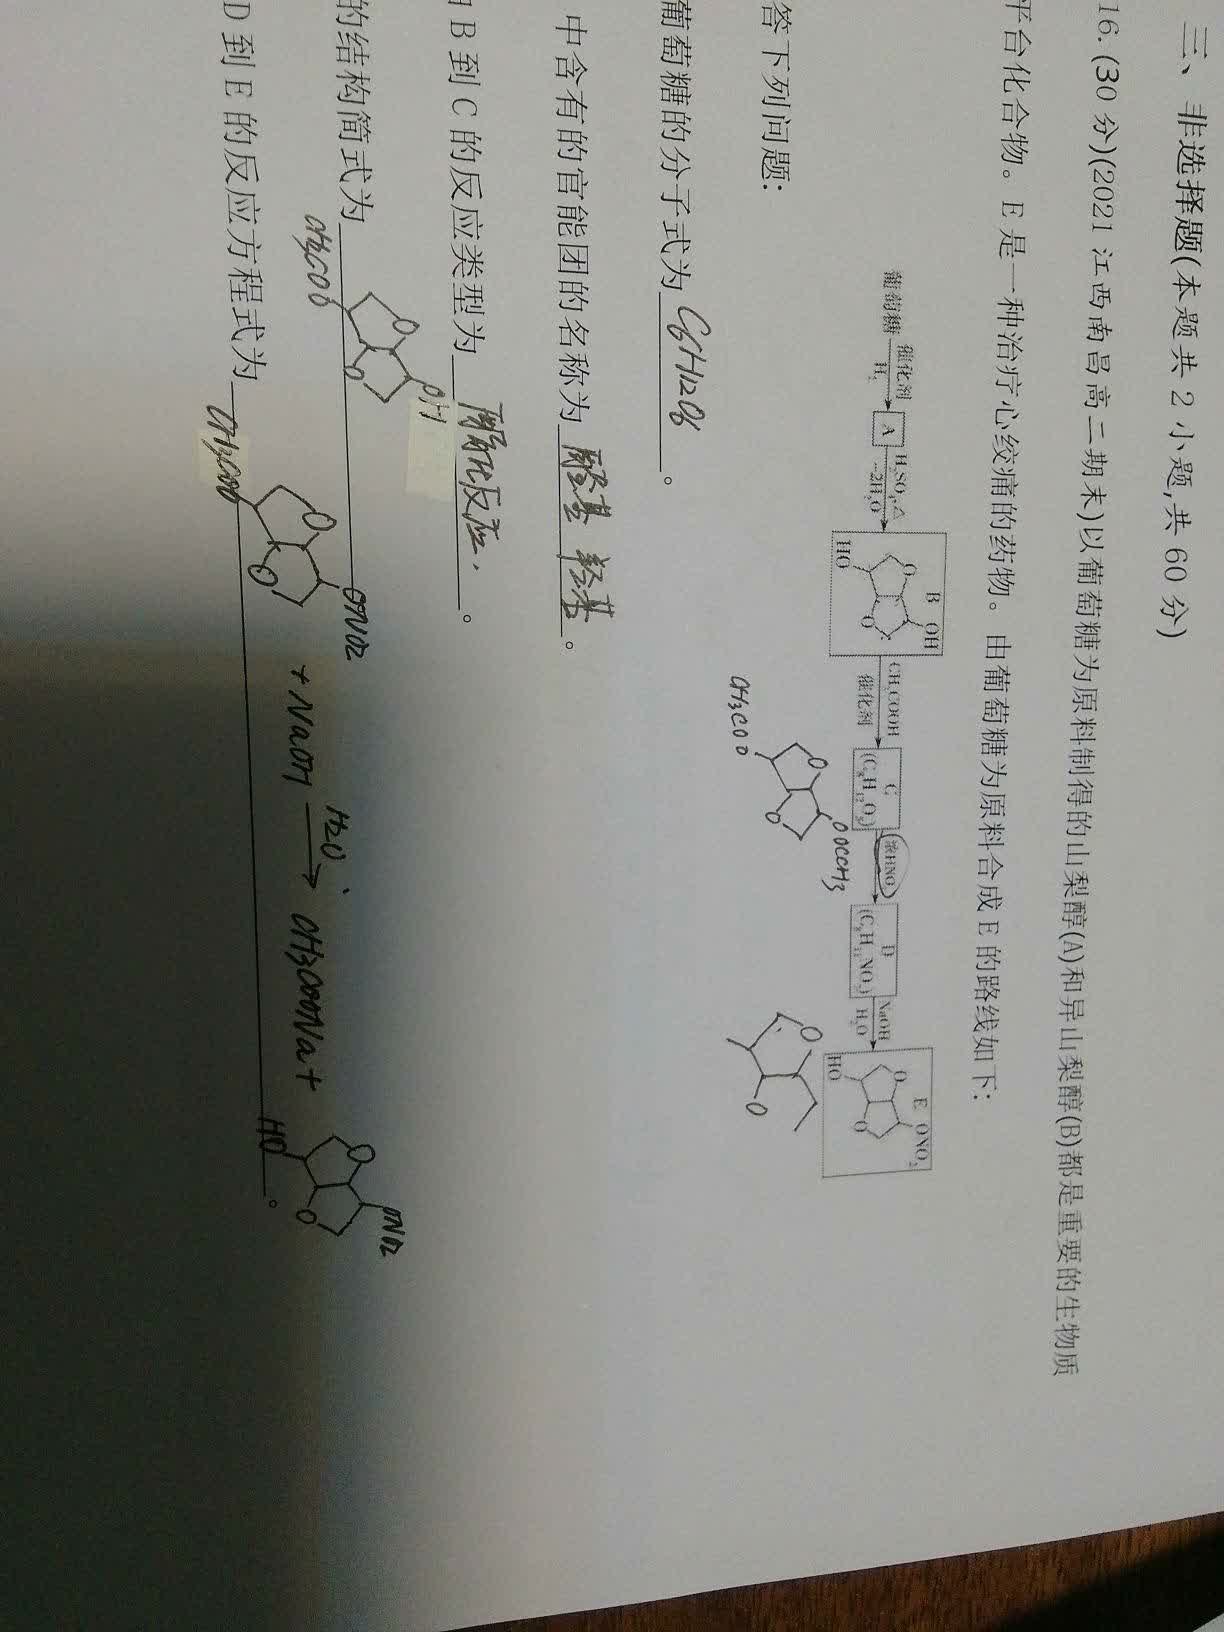 三、非选择题(本题共2小题,共60分)
16.(30分)(2021江西南昌高二期末)以葡萄糖为原料制得的山梨醇(A)和异山梨醇(B)都是重要的生物质
平台化合物。E是一种治疗心绞痛的药物。由葡萄糖为原料合成E的路线如下:
葡萄糖 催化剂 H₂ A H₂SO₄,△ -2H₂O B OH O O HO CH₃COOH 催化剂 C (C₈H₁₂O₅) 浓HNO₃ D (C₈H₁₁NO₇) NaOH H₂O E ONO₂ O O HO
CH3COO O O OOCCH3
O O
答下列问题:
葡萄糖的分子式为 C6H12O6 。
中含有的官能团的名称为 醚基 羟基 。
B到C的反应类型为 酯化反应. 。
的结构简式为 CH3COO O O OH
D到E的反应方程式为 CH3COO O O ONO2 + NaOH H2O CH3COONa + HO O O ONO2 。